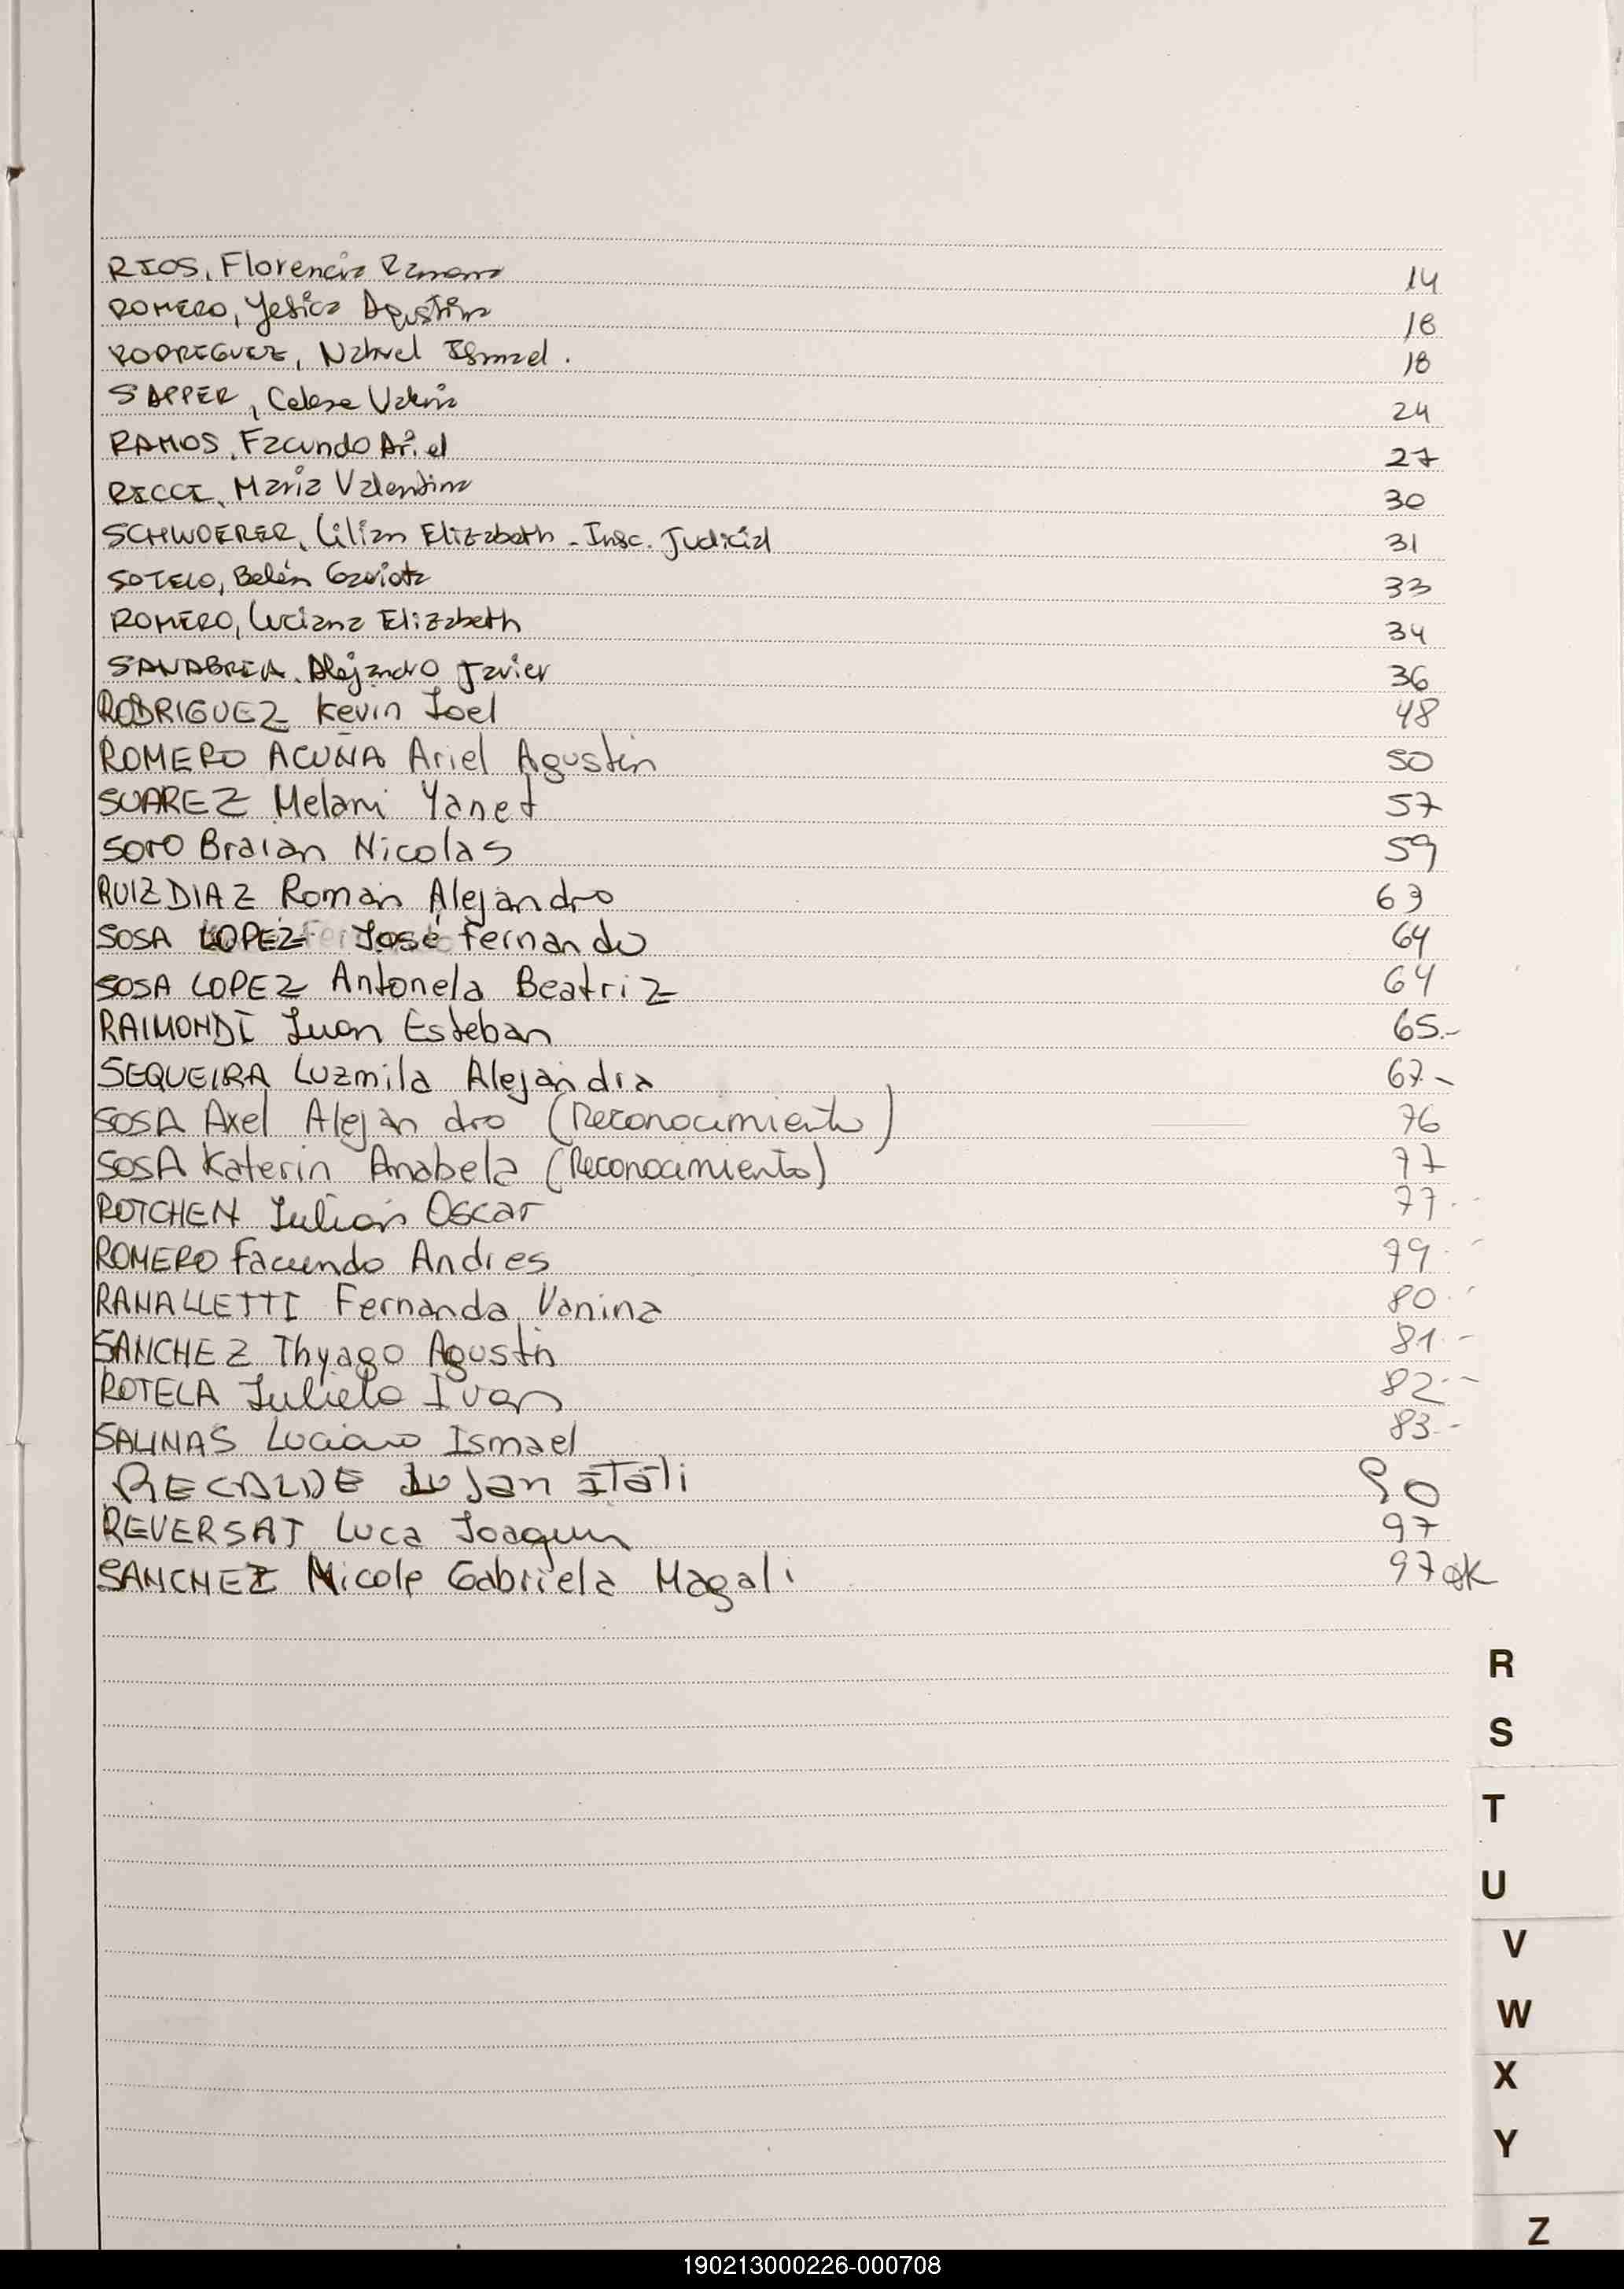 RIOS, Florencia Ramona 14
ROMERO, Yesica Agustina 18
RODRIGUEZ, Nahuel Ismael. 18
SAPPER, Celene Valeria 24
RAMOS, Facundo Ariel 27
RICCI, Maria Valentina 30
SCHWOERER, Lilian Elizabeth - Insc. Judicial 31
SOTELO, Belén 33
ROMERO, Luciana Elizabeth 34
SANABRIA, Alejandro Javier 36
RODRIGUEZ Kevin Joel 48
ROMERO ACUÑA Ariel Agustin 50
SUAREZ Melani Yanet 57
SOTO Braian Nicolas 59
RUIZ DIAZ Roman Alejandro 63
SOSA LOPEZ José Fernando 64
SOSA LOPEZ Antonela Beatriz 64
RAIMONDI Juan Esteban 65.-
SEQUEIRA Luzmila Alejandra 67.-
SOSA Axel Alejandro (Reconocimiento) 76
SOSA Katerin Anabela (Reconocimiento) 77
ROTCHEN Julian Oscar 77.-
ROMERO Facundo Andres 79.-
RANALLETTI Fernanda Vanina 80.-
SANCHEZ Thyago Agustin 81.-
ROTELA Julieta Ivan 82.-
SALINAS Luciano Ismael 83.-
RECALDE Lujan Itali 90
REVERSAT Luca Joaquin 97
SANCHEZ Nicole Gabriela Magali 97 ok
R
S
T
U
V
W
X
Y
Z
190213000226-000708